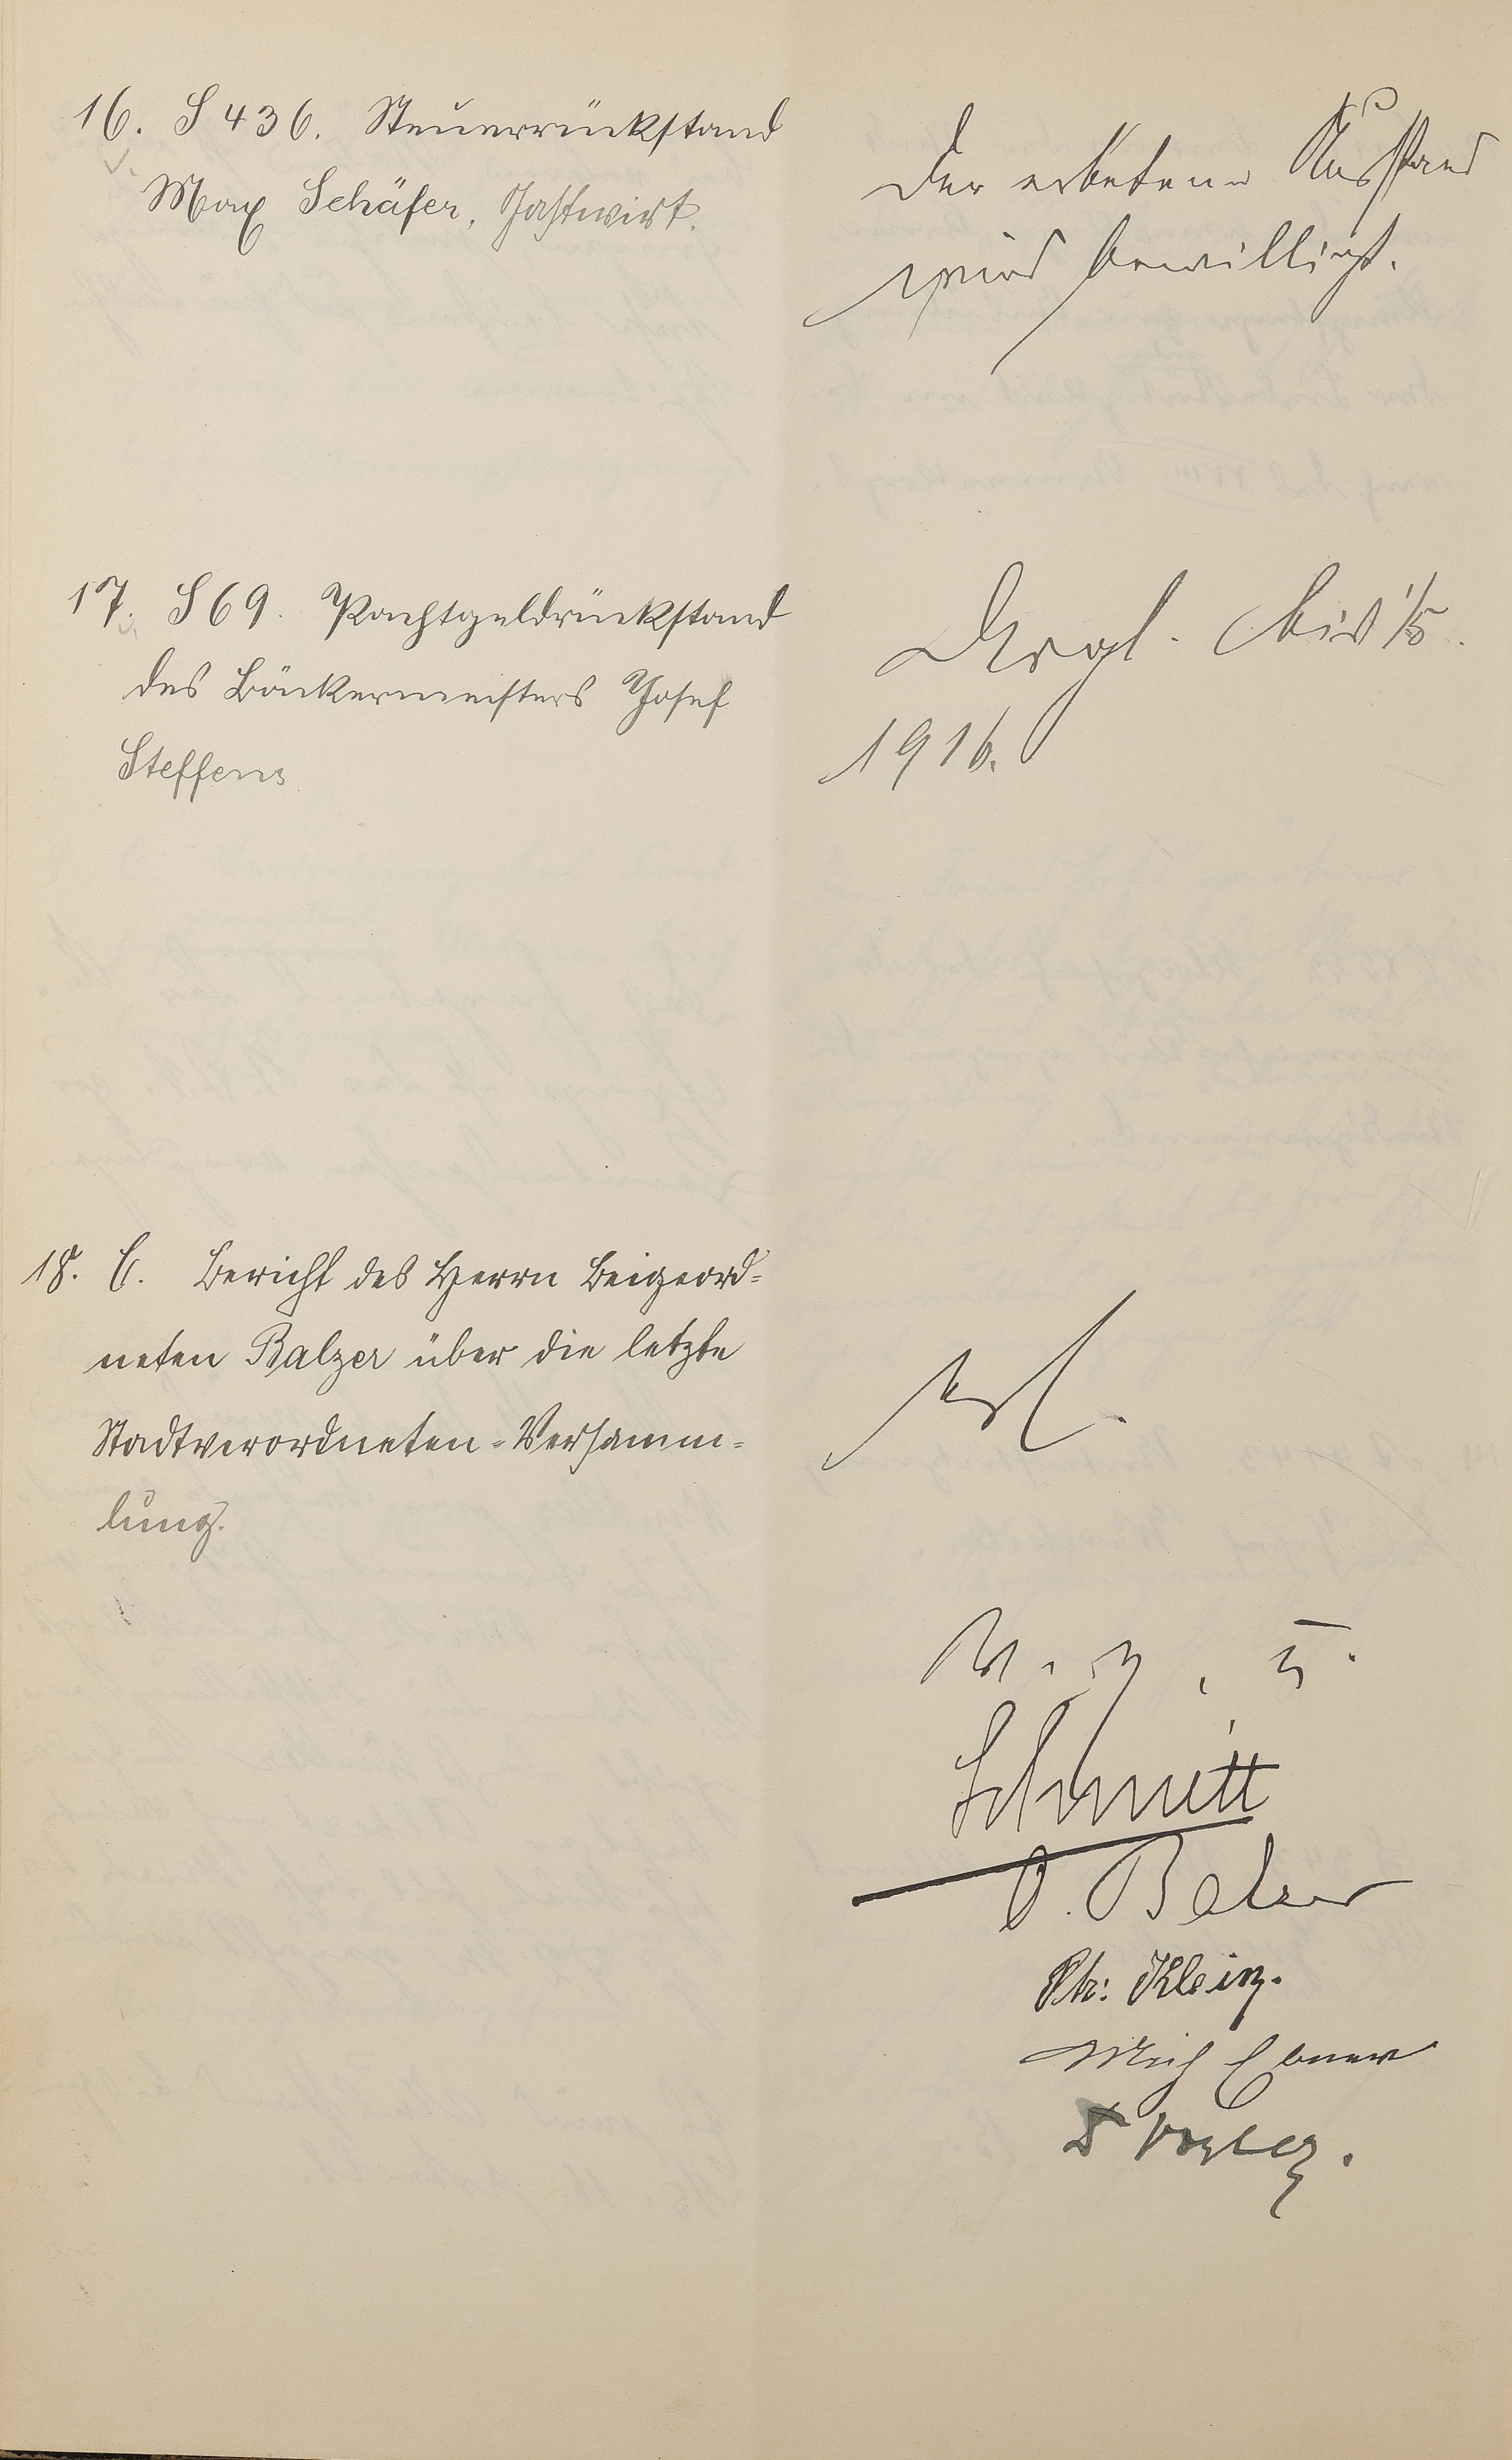 16. S 436. Steuerrückstand
Max Schäfer, Gastwirt.
Der erbetene Ausstand
wird bewilligt.
17. S 69. Pachtgeldrückstand
des Bäckermeisters Josef
Steffens
Desgl. bis 1/5.
1916.
18. C. Bericht des Herrn Beigeord=
neten Balzer über die letzte
Stadtverordneten-Versamm=
lung.
V. g. u.
Schmitt
Balzer
Ptr: Klein.
Mich Ebner